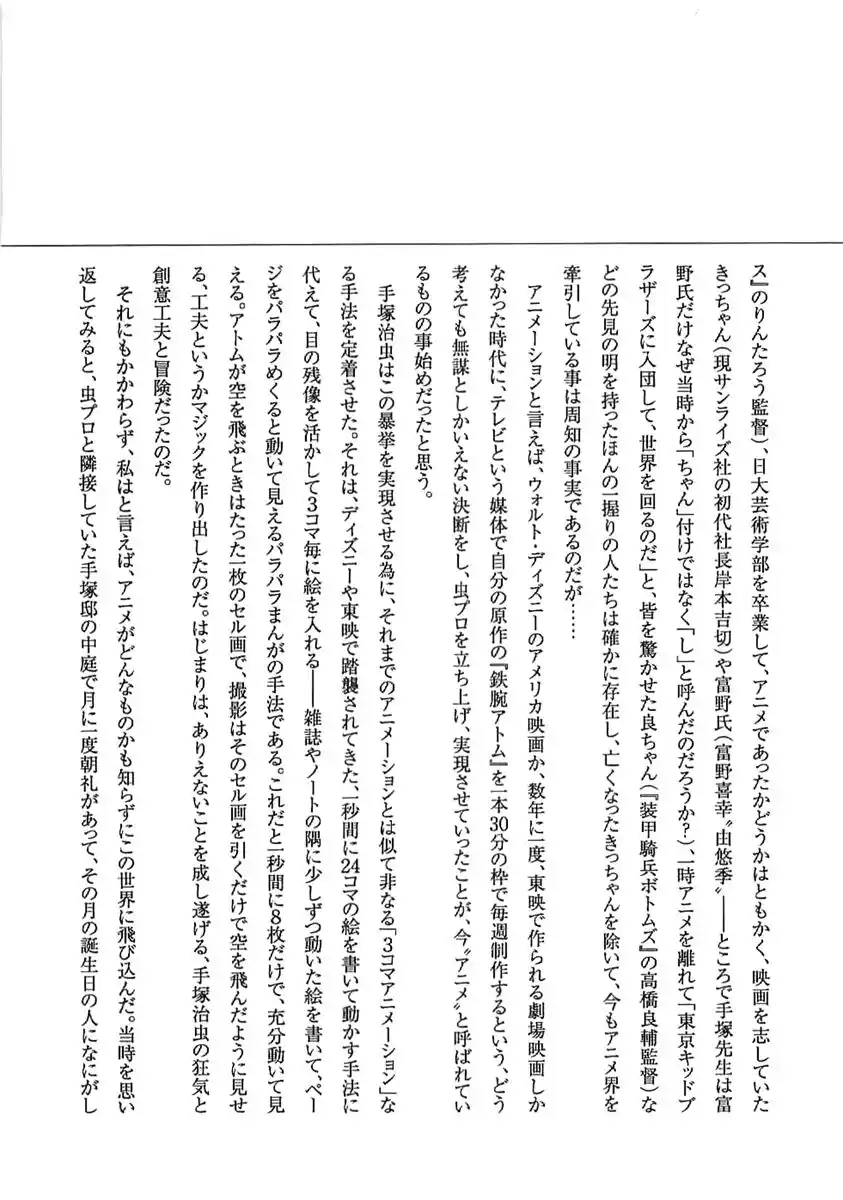 ス』のりんたろう監督)、日大芸術学部を卒業して、アニメであったかどうかはともかく、映画を志していた
きっちゃん(現サンライズ社の初代社長岸本吉功)や富野氏(富野喜幸〝由悠季〟――ところで手塚先生は富
野氏だけなぜ当時から「ちゃん」付けではなく「し」と呼んだのだろうか?)、一時アニメを離れて「東京キッドブ
ラザーズに入団して、世界を回るのだ」と、皆を驚かせた良ちゃん(『装甲騎兵ボトムズ』の高橋良輔監督)な
どの先見の明を持ったほんの一握りの人たちは確かに存在し、亡くなったきっちゃんを除いて、今もアニメ界を
牽引している事は周知の事実であるのだが……
アニメーションと言えば、ウォルト・ディズニーのアメリカ映画か、数年に一度、東映で作られる劇場映画しか
なかった時代に、テレビという媒体で自分の原作の『鉄腕アトム』を一本30分の枠で毎週制作するという、どう
考えても無謀としかいえない決断をし、虫プロを立ち上げ、実現させていったことが、今〝アニメ〟と呼ばれてい
るものの事始めだったと思う。
手塚治虫はこの暴挙を実現させる為に、それまでのアニメーションとは似て非なる「3コマアニメーション」な
る手法を定着させた。それは、ディズニーや東映で踏襲されてきた、一秒間に24コマの絵を書いて動かす手法に
代えて、目の残像を活かして3コマ毎に絵を入れる――雑誌やノートの隅に少しずつ動いた絵を書いて、ペー
ジをパラパラめくると動いて見えるパラパラまんがの手法である。これだと一秒間に8枚だけで、充分動いて見
える。アトムが空を飛ぶときはたった一枚のセル画で、撮影はそのセル画を引くだけで空を飛んだように見せ
る、工夫というかマジックを作り出したのだ。はじまりは、ありえないことを成し遂げる、手塚治虫の狂気と
創意工夫と冒険だったのだ。
それにもかかわらず、私はと言えば、アニメがどんなものかも知らずにこの世界に飛び込んだ。当時を思い
返してみると、虫プロと隣接していた手塚邸の中庭で月に一度朝礼があって、その月の誕生日の人になにがし